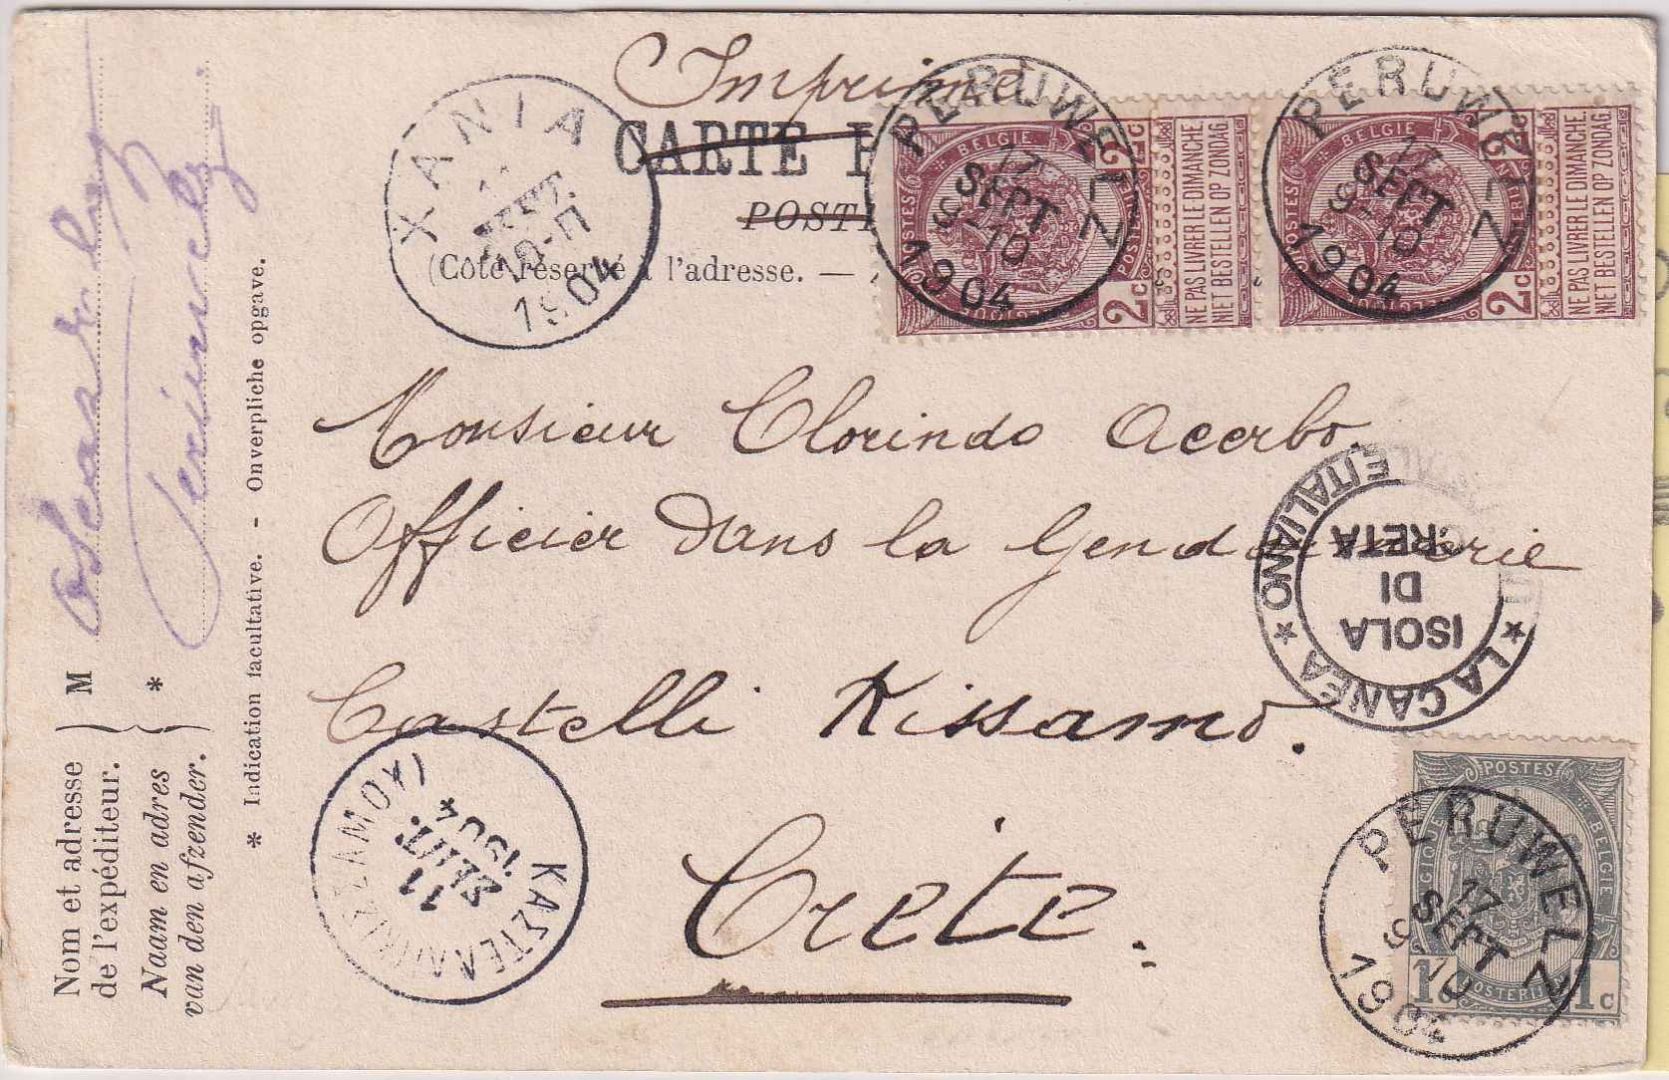 Imprimé
CARTE
(Côté réservé à l'adresse. —
XANIA
ΣΕΠΤ.
10-Π
1904
PERUWELZ
17
SEPT
9-10
1904
POSTES BELGIE
2c 2c
NE PAS LIVRER LE DIMANCHE
NIET BESTELLEN OP ZONDAG
PERUWELZ
17
SEPT
9-10
1904
BELGIE
2c 2c
NE PAS LIVRER LE DIMANCHE
NIET BESTELLEN OP ZONDAG
Monsieur Clorindo Acerbo.
Officier dans la Gendarmerie
Castelli Kissamo.
Crete.
★ LA CANEA ★ ITALIANO
ISOLA
DI
CRETA
ΚΑΣΤΕΛΛΙ
11
ΣΕΠΤ.
1904
POSTES BELGIE
1c 1c
PERUWELZ
17
SEPT
9 10
1904
Nom et adresse
de l'expéditeur.
Naam en adres
van den afzender.
M
*
* Indication facultative. - Onverpliche opgave.